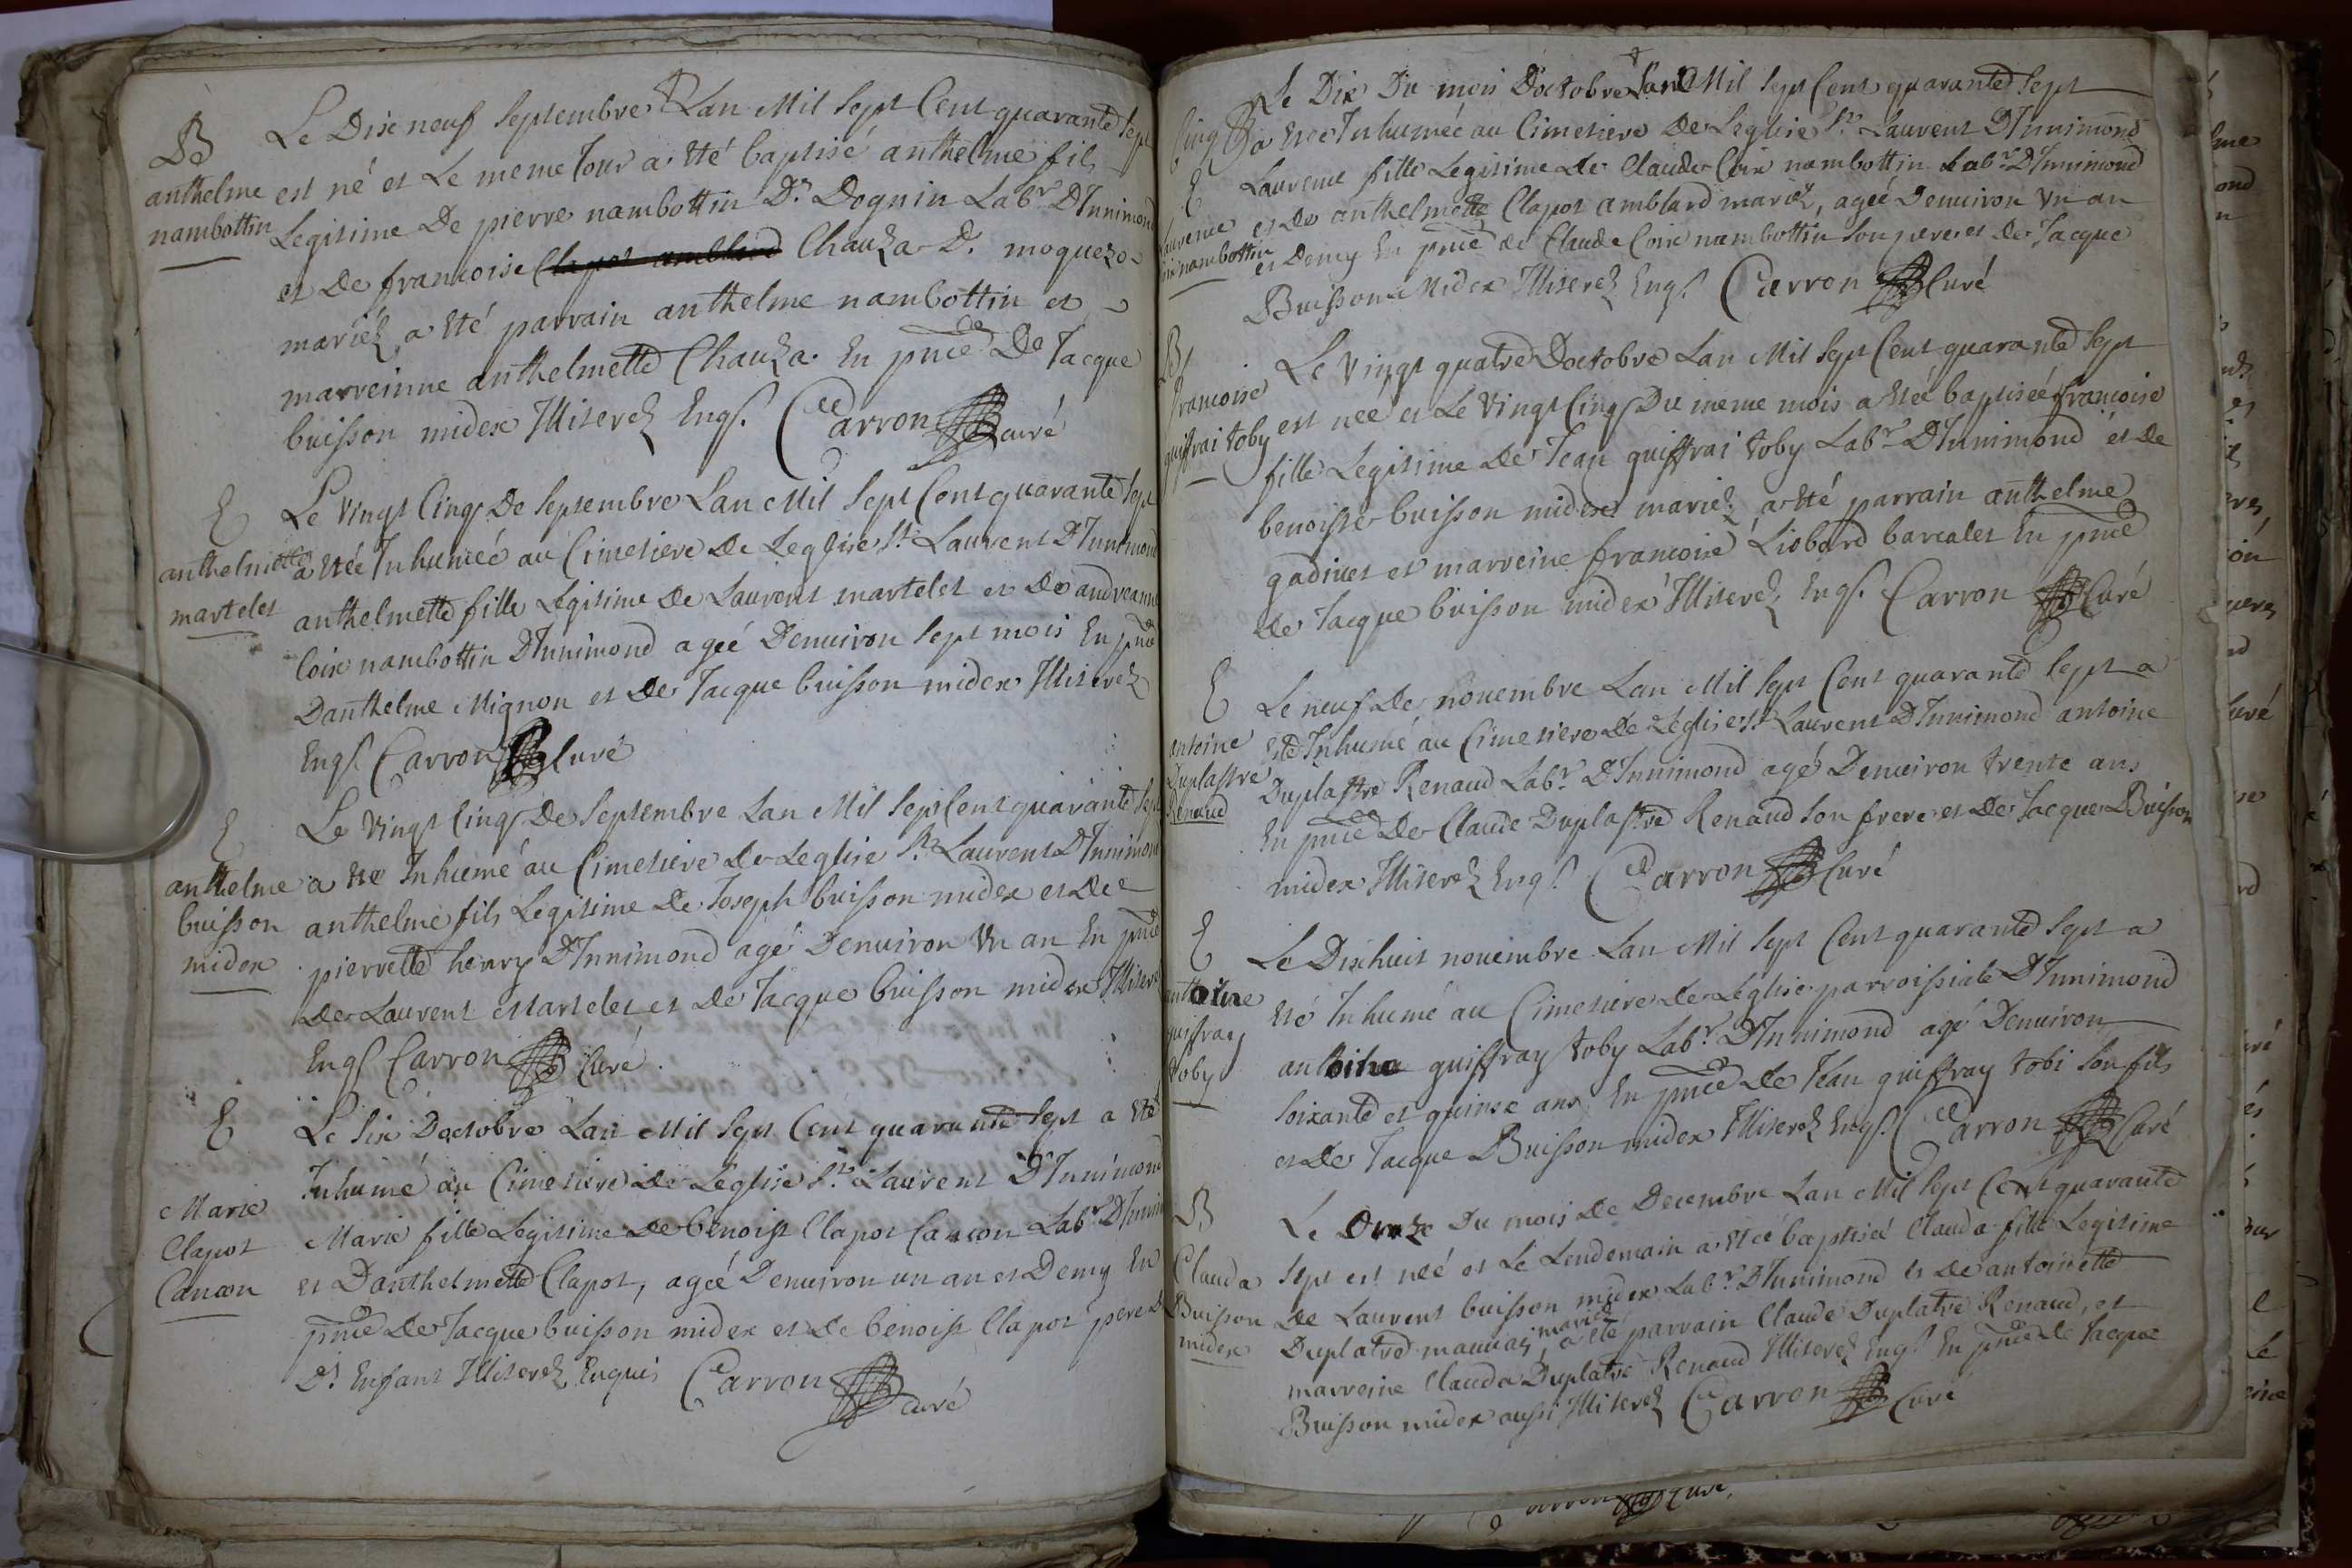 B
anthelme
nambottin
Le Dixneuf Septembre Lan Mil Sept Cent quarante Sept
est né et Le meme Jour a Eté baptisé anthelme fils
Legitime De pierre nambottin Dt Dognin Labr DInnimond
et De francoise Clapot amblard Chauza D. moquezo
mariéz a Eté parrain anthelme nambottin et
marreinne anthelmette Chauza. En pnce De Jacque
buisson midex Illiterez Engs. Carron curé
E
anthelmette
martelet
Le Vingt Cinq De Septembre Lan Mil Sept Cent quarante Sept
a Etée Inhumeé au Cimetiere De Leglise St Laurent DInnimond
anthelmette fille Legitime De Laurent martelet et De andreanne
Coix nambottin DInnimond ageé Denuiron Sept mois En pnce
Danthelme Mignon et De Jacque buisson midex Illiterez
Engs. Carron Curé
E
anthelme
buisson
midex
Le Vingt Cinq De Septembre Lan Mil Sept Cent quarante Sept
a Eté Inhumé au Cimetiere De Leglise St Laurent DInnimond
anthelme fils Legitime De Joseph buisson midex et De
pierrette henry DInnimond agé Denuiron Un an En pnce
De Laurent Martelet et De Jacque buisson midex Illiterez
Engs Carron Curé
E
Marie
Clapot
Cancon
Le Six Doctobre Lan Mil Sept Cent quarante Sept a Eté
Inhumé au Cimetiere De Leglise St. Laurent DInnimond
Marie fille Legitime De benoist Clapot Cancon Labr DInnimond
et Danthelmette Clapot, ageé Denuiron un an et Demy En
pnce De Jacque buisson midex et De benoist Clapot pere D
Dt Enfant Illiterez Enquis Carron curé
E
Laurence
Coix nambottin
Le Dix Du mois Doctobre Lan Mil Sept Cent quarante Sept
a Etée Inhumeé au Cimetiere De Leglise St Laurent DInnimond
Laurence fille Legitime De Claude Coix nambottin Labr DInnimond
et De anthelmette Clapot amblard mariéz, ageé Denuiron Un an
et Demy En pnce de Claude Coix nambottin Son pere et De Jacque
Buisson Midex Illiterez Engs. Carron Curé
B
francoise
guiffrai toby
Le Vingt quatre Doctobre Lan Mil Sept Cent quarante Sept
est neé et Le Vingt Cinq Du meme mois a Eté baptiseé francoise
fille Legitime De Jean guiffrai toby Labr DInnimond et De
benoiste buisson midex mariez, a Eté parrain anthelme
gadiuet et marreine francoise Liobard barcalet En pnce
De Jacque buisson midex Illiterez Engs. Carron Curé
E
antoine
Duplastre
Renaud
Le neuf De nouembre Lan Mil Sept Cent quarante Sept a
Eté Inhumé au Cimetiere De Léglise St Laurent DInnimond antoine
Duplastre Renaud Labr DInnimond agé Denuiron trente ans
En pnce De Claude Duplastre Renaud Son frere et De Jacque Buisson
midex Illiterez Engs. Carron Curé
E
anthoine
guiffray
toby
Le Dixhuit nouembre Lan Mil Sept Cent quarante Sept a
Eté Inhumé au Cimetiere De Léglise parroissiale DInnimond
anthoine guiffray toby Labr DInnimond agé Denuiron
Soixante et quinze ans En pnce de Jean guiffray tobi Son fils
et De Jacque Buisson midex Illiterez Engs. Carron Curé
B
Clauda
Buisson
midex
Le Onze Du mois De Decembre Lan Mil Sept Cent quarante
Sept est neé et Le Lendemain a Eteé baptiseé Clauda fille Legitime
De Laurent buisson midex Labr DInnimond et De antoinette
Duplatre mauuais, mariéz a eté parrain Claude Duplatre Renaud, et
marreine Clauda Duplatre Renaud Illiterez Engs En pnce de Jacque
Buisson midex aussi Illiterez Carron Curé